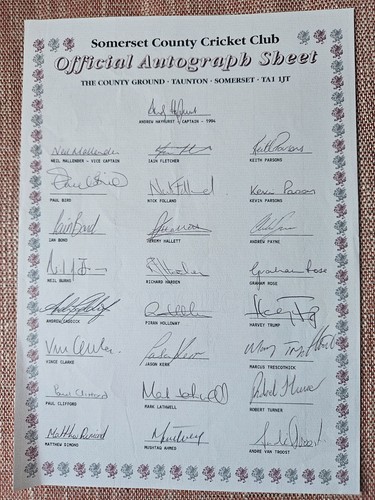 Somerset County Cricket Club
Official Autograph Sheet
THE COUNTY GROUND · TAUNTON · SOMERSET · TA1 1JT
ANDREW HAYHURST - CAPTAIN - 1994
Neil Mallender Keith Parsons
NEIL MALLENDER - VICE CAPTAIN IAIN FLETCHER KEITH PARSONS
Kevin Parsons
PAUL BIRD NICK FOLLAND KEVIN PARSONS
IAN BOND JEREMY HALLETT ANDREW PAYNE
Graham Rose
NEIL BURNS RICHARD HARDEN GRAHAM ROSE
ANDREW CADDICK PIRAN HOLLOWAY HARVEY TRUMP
VINCE CLARKE JASON KERR MARCUS TRESCOTHICK
Paul Clifford Mark Lathwell
PAUL CLIFFORD MARK LATHWELL ROBERT TURNER
MATTHEW DIMOND MUSHTAQ AHMED ANDRE VAN TROOST